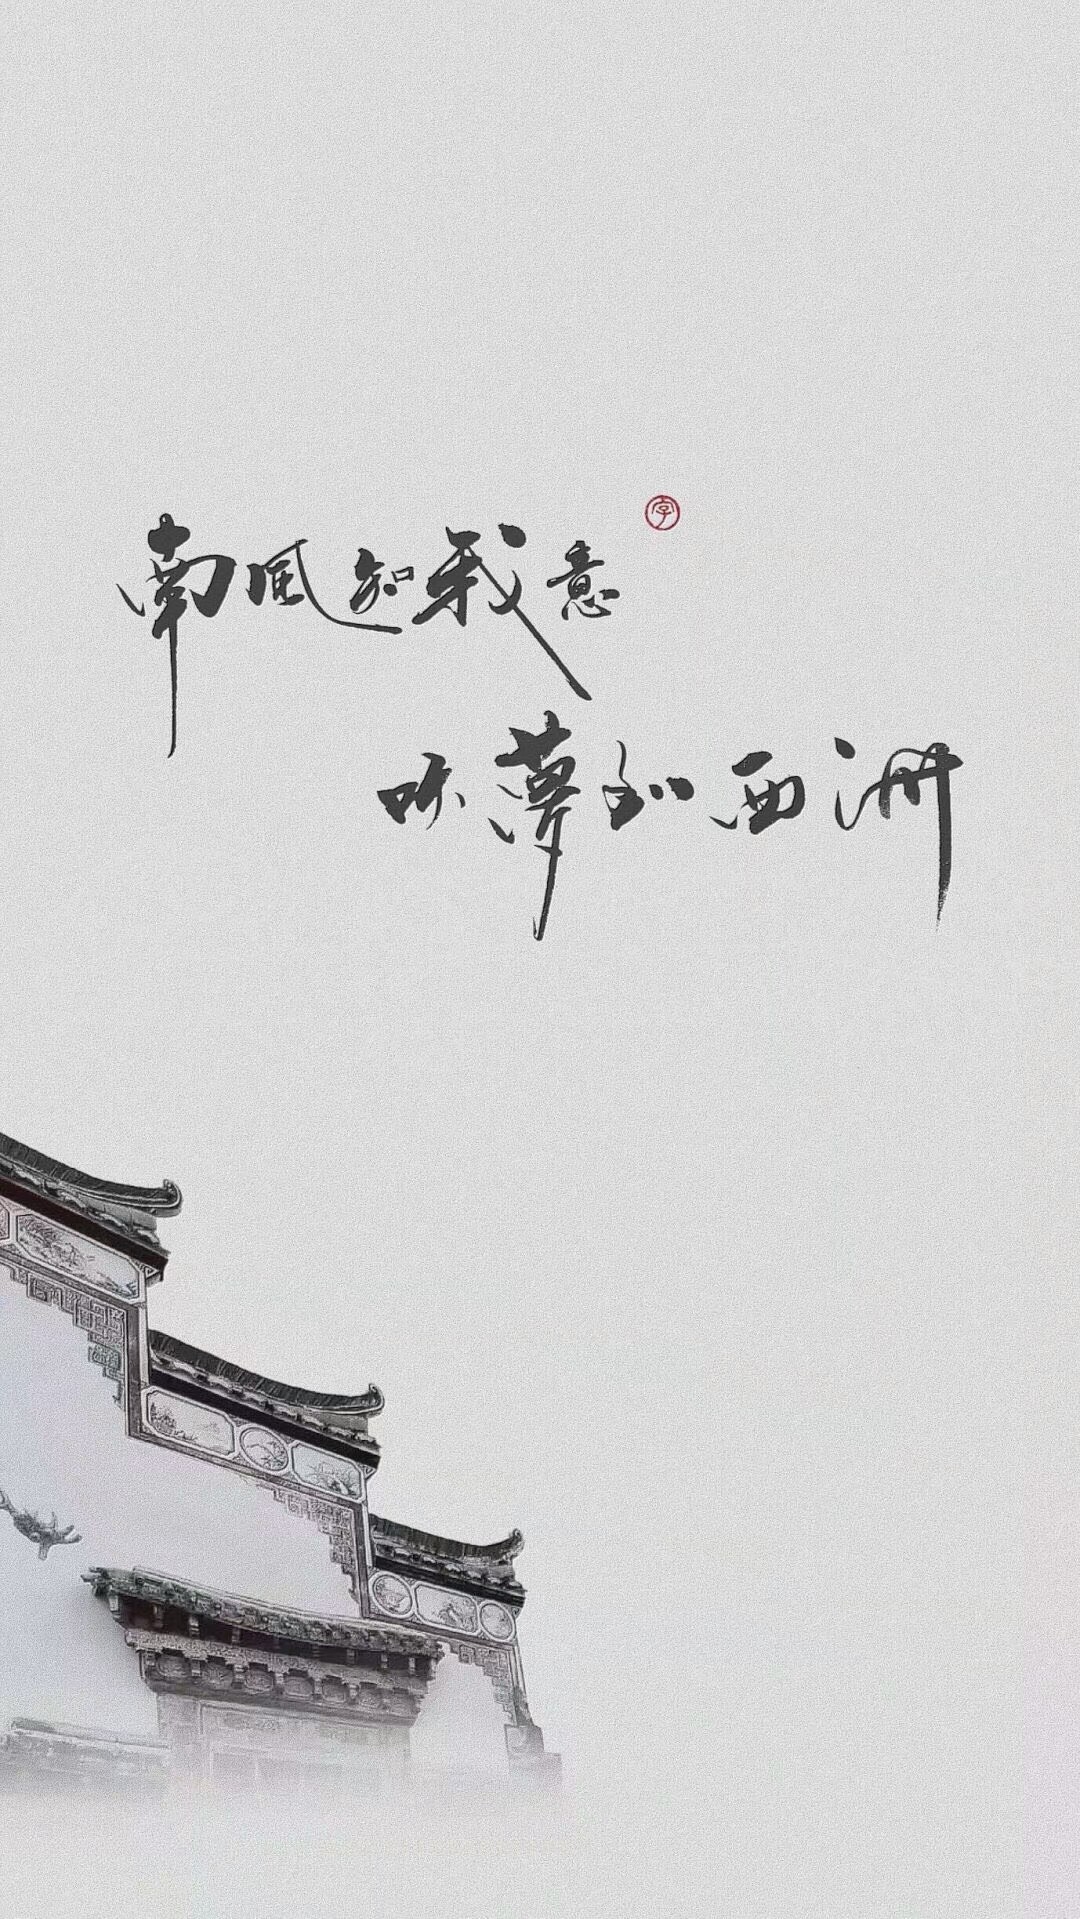 南風知我意
字
吹夢到西洲